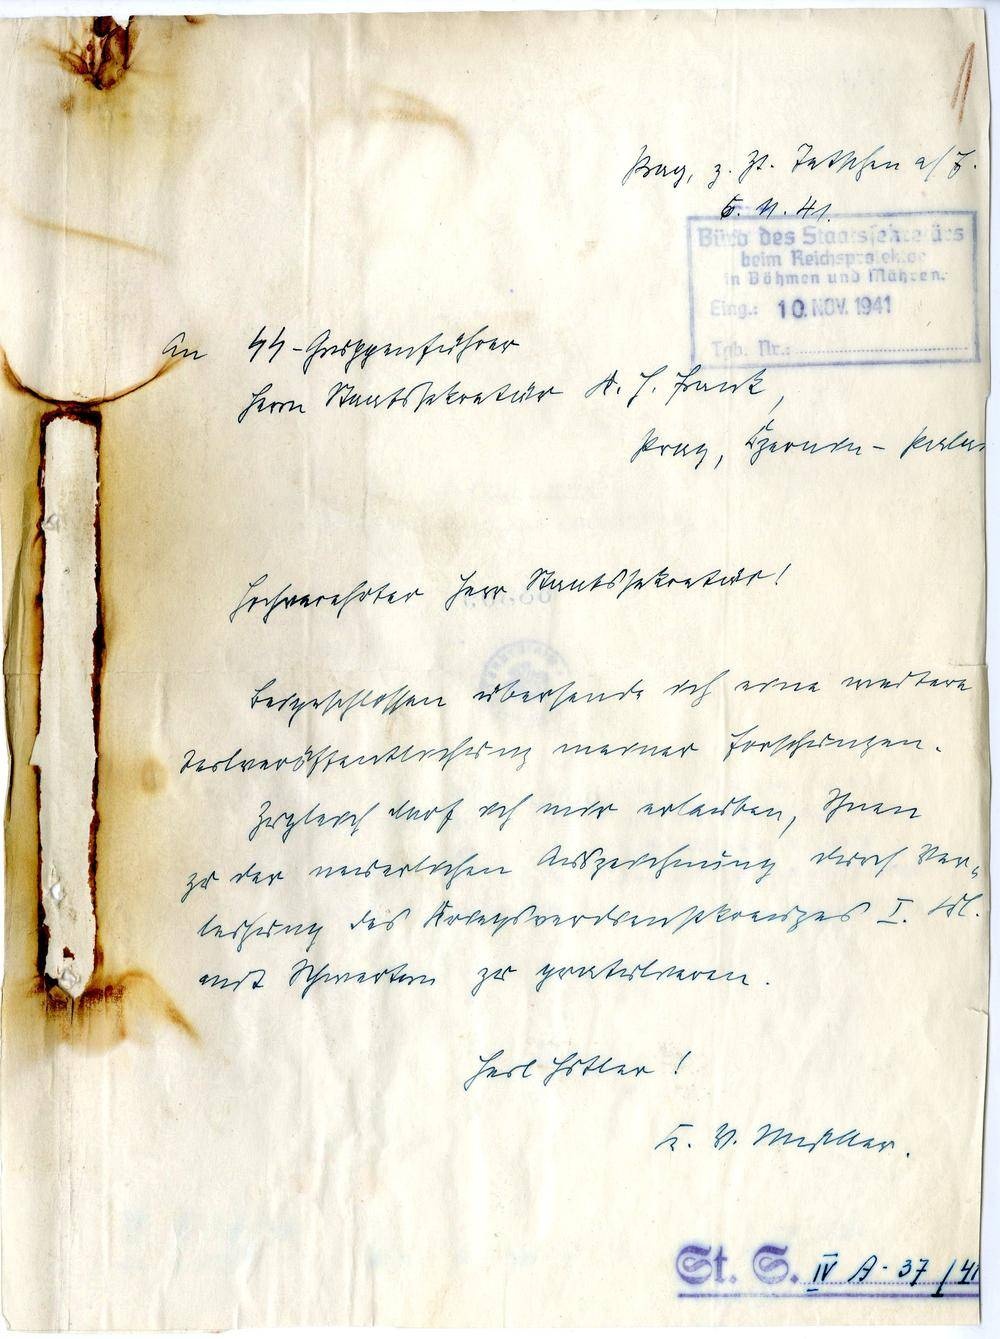 Prag, z. Zt. Tetschen a/E.
5. 11. 41.
Büro des Staatssekretärs
beim Reichsprotektor
in Böhmen und Mähren.
Eing.: 10. NOV. 1941
Tgb. Nr.:
An SS-Gruppenführer
Herrn Staatssekretär K. H. Frank,
Prag, Czernin-Palais
Hochverehrter Herr Staatssekretär!
Beigeschlossen übersende ich eine weitere
Teilveröffentlichung meiner Forschungen.
Zugleich darf ich mir erlauben, Ihnen
zu der neuerlichen Auszeichnung durch Ver-
leihung des Kriegsverdienstkreuzes I. Kl.
mit Schwertern zu gratulieren.
Heil Hitler!
K. V. Müller.
St. S. IV A - 37 / 41